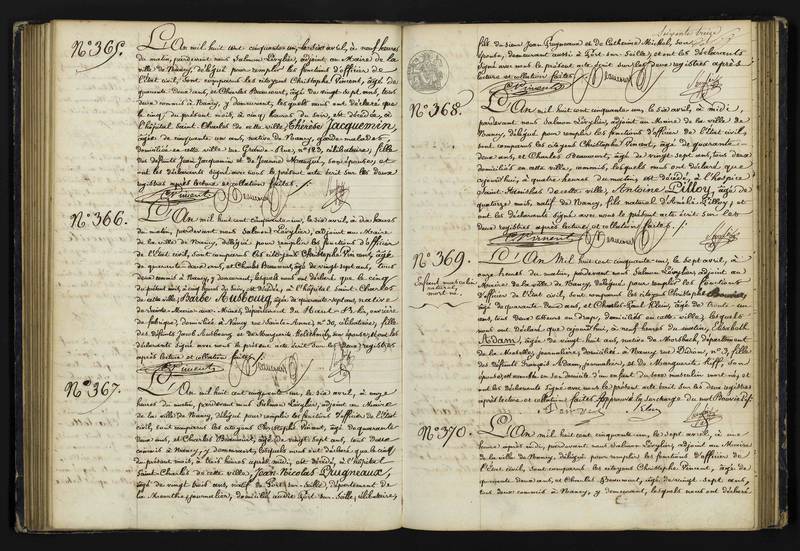 N.° 365.
L'An mil huit cent cinquante-un, le six avril, à neuf heures
du matin, pardevant nous Salmon Lévylier, adjoint au Maire de la
ville de Nancy, délégué pour remplir les fonctions d'officier de
l'état civil, sont comparus les citoyens Christophe Vincent, âgé de
quarante-deux ans, et Charles Beaumont, âgé de vingt-sept ans, tous
deux commis à Nancy, y demeurant, lesquels nous ont déclaré que
le cinq, du présent mois, à cinq heures du soir, est décédée, à
l'hôpital Saint Charles de cette ville, Thérèse Jacquemin,
âgée de cinquante-six ans, native de Nancy, garde-malades,
domiciliée en cette ville, rue Grande Rue, n.° 123, célibataire, fille
des défunts Jean Jacquemin et de Jeanne son épouse; et
ont les déclarants signé avec nous le présent acte écrit sur les deux
registres après lecture et collation faites.
Vincent Beaumont
N.° 366.
L'An mil huit cent cinquante-un, le six avril, à dix heures
du matin, pardevant nous Salmon Lévylier, adjoint au Maire
de la ville de Nancy, délégué pour remplir les fonctions d'officier
de l'état civil, sont comparus les citoyens Christophe Vincent, âgé
de quarante-deux ans, et Charles Beaumont, âgé de vingt-sept ans, tous
deux commis à Nancy, y demeurant, lesquels nous ont déclaré que le cinq
du présent mois, à cinq heures du soir, est décédée, à l'hôpital Saint-Charles
de cette ville, Barbe Ausbourg, âgée de quarante-sept ans, native
de Sainte-Marie-aux-Mines, département du Haut-Rhin, ouvrière
de fabrique, domiciliée à Nancy rue Sainte-Anne, n.° 10, célibataire, fille
des défunts Jacob Ausbourg et de Marguerite son épouse; et ont les
déclarants signé avec nous le présent acte écrit sur les deux registres
après lecture et collation faites.
Vincent Beaumont
N.° 367.
L'An mil huit cent cinquante-un, le six avril, à onze
heures du matin, pardevant nous Salmon Lévylier, adjoint au Maire
de la ville de Nancy, délégué pour remplir les fonctions d'officier de l'état
civil, sont comparus les citoyens Christophe Vincent, âgé de quarante
deux ans, et Charles Beaumont, âgé de vingt-sept ans, tous deux
commis à Nancy, y demeurant, lesquels nous ont déclaré que le cinq
du présent mois, à huit heures après midi, est décédé, à l'hôpital
Saint Charles de cette ville, Jean Nicolas Prugneaux,
âgé de vingt trois ans, natif de Port-sur-Seille, département de
la Meurthe, journalier, domicilié audit Port-sur-Seille, célibataire,
Soixante treize
fils du sieur Jean Prugneaux et de Catherine Michel, son
épouse, demeurant aussi à Port-sur-Seille; et ont les déclarants
signé avec nous le présent acte écrit sur les deux registres après
lecture et collation faites.
Vincent Beaumont
N.° 368.
L'An mil huit cent cinquante-un, le six avril, à midi,
pardevant nous Salmon Lévylier, adjoint au Maire de la ville de
Nancy, délégué pour remplir les fonctions d'officier de l'état civil,
sont comparus les citoyens Christophe Vincent, âgé de quarante-
deux ans, et Charles Beaumont, âgé de vingt-sept ans, tous deux
domiciliés en cette ville, commis, lesquels nous ont déclaré que
cejourd'hui, à quatre heures du matin, est décédé, à l'hospice
Saint Stanislas de cette ville, Antoine Pilloy, âgé de
quatorze mois, natif de Nancy, fils naturel d'Amélie Pilloy; et
ont les déclarants signé avec nous le présent acte écrit sur les
deux registres après lecture et collation faites.
Vincent Beaumont
N.° 369.
Enfant masculin
naturel,
mort né.
L'An mil huit cent cinquante-un, le sept avril, à
onze heures du matin, pardevant nous Salmon Lévylier, adjoint au
Maire de la ville de Nancy, délégué pour remplir les fonctions
d'officier de l'état civil, sont comparus les citoyens Christophe
âgé de quarante-deux ans, et Charles Klein, âgé de trente-cinq
ans, tous deux en draps, domiciliés en cette ville; lesquels
nous ont déclaré que cejourd'hui, à neuf heures du matin, Elisabeth
Adam, âgée de vingt-huit ans, native de département
de la Moselle, journalière, domiciliée à Nancy rue Didion, n.° 3, fille
des défunts François Adam, journalier, et de Marguerite son
épouse, est accouchée en son domicile d'un enfant du sexe masculin mort né; et
ont les déclarants signé avec nous le présent acte écrit sur les deux registres
après lecture et collation faites. Approuvé la surcharge du mot
Klein
N.° 370.
L'An mil huit cent cinquante-un, le sept avril, à une
heure après midi, pardevant nous Salmon Lévylier, adjoint au Maire
de la ville de Nancy, délégué pour remplir les fonctions d'officier de
l'état civil, sont comparus les citoyens Christophe Vincent, âgé de
quarante-deux ans, et Charles Beaumont, âgé de vingt-sept ans,
tous deux commis à Nancy, y demeurant, lesquels nous ont déclaré